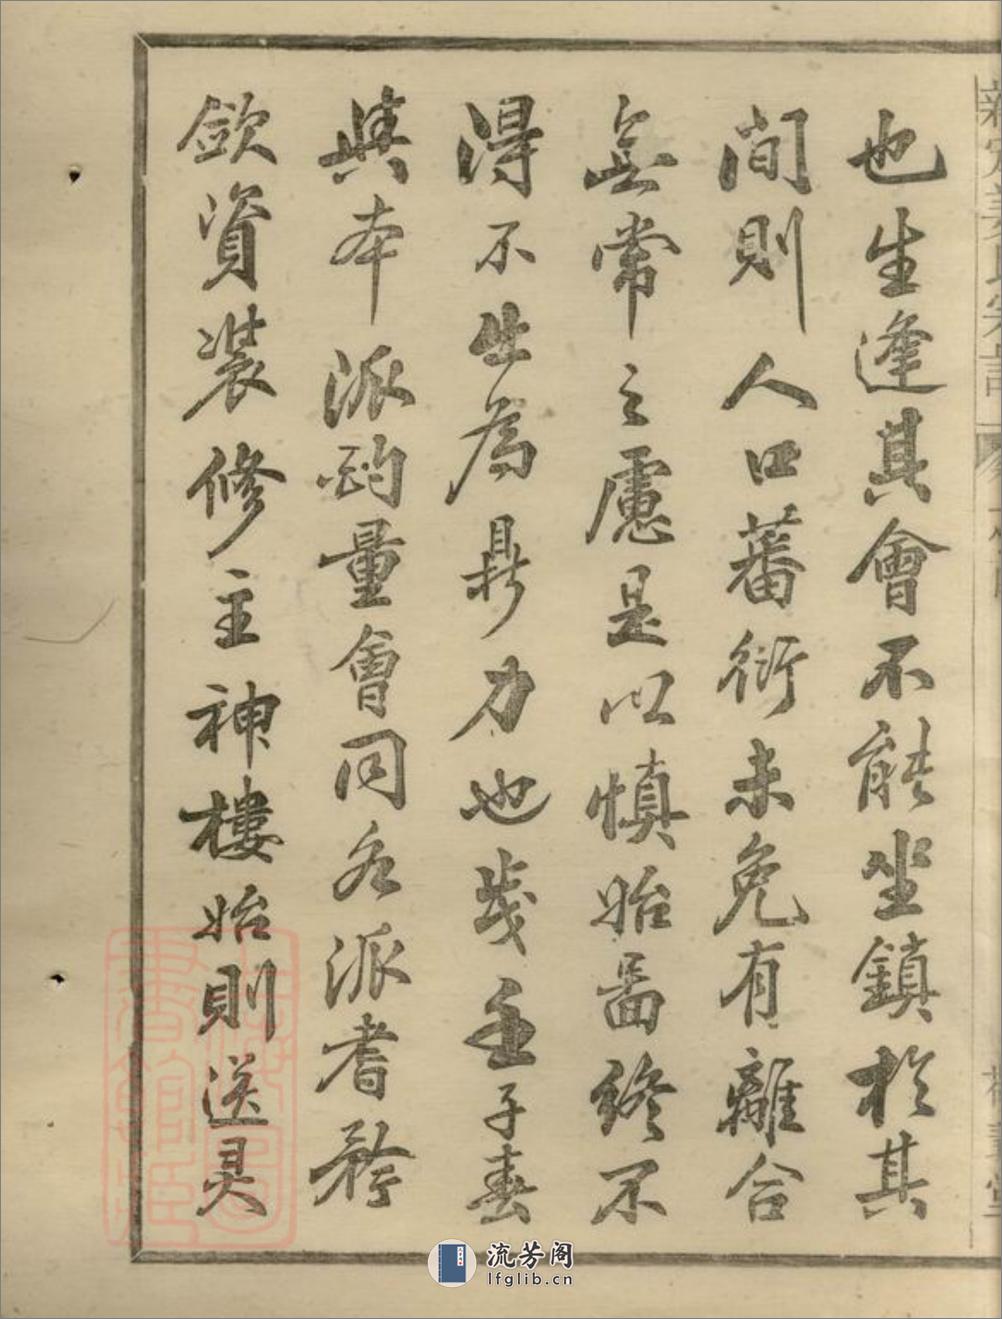 也生逢其會不能坐鎮於其
間則人口蕃衍未免有離合
無常之慮是以慎始啚終不
得不出為鼎力也歲壬子春
與本派酌量會同各派耆矜
歛資裝修主神樓始則送灵
流芳阁
lfglib.cn